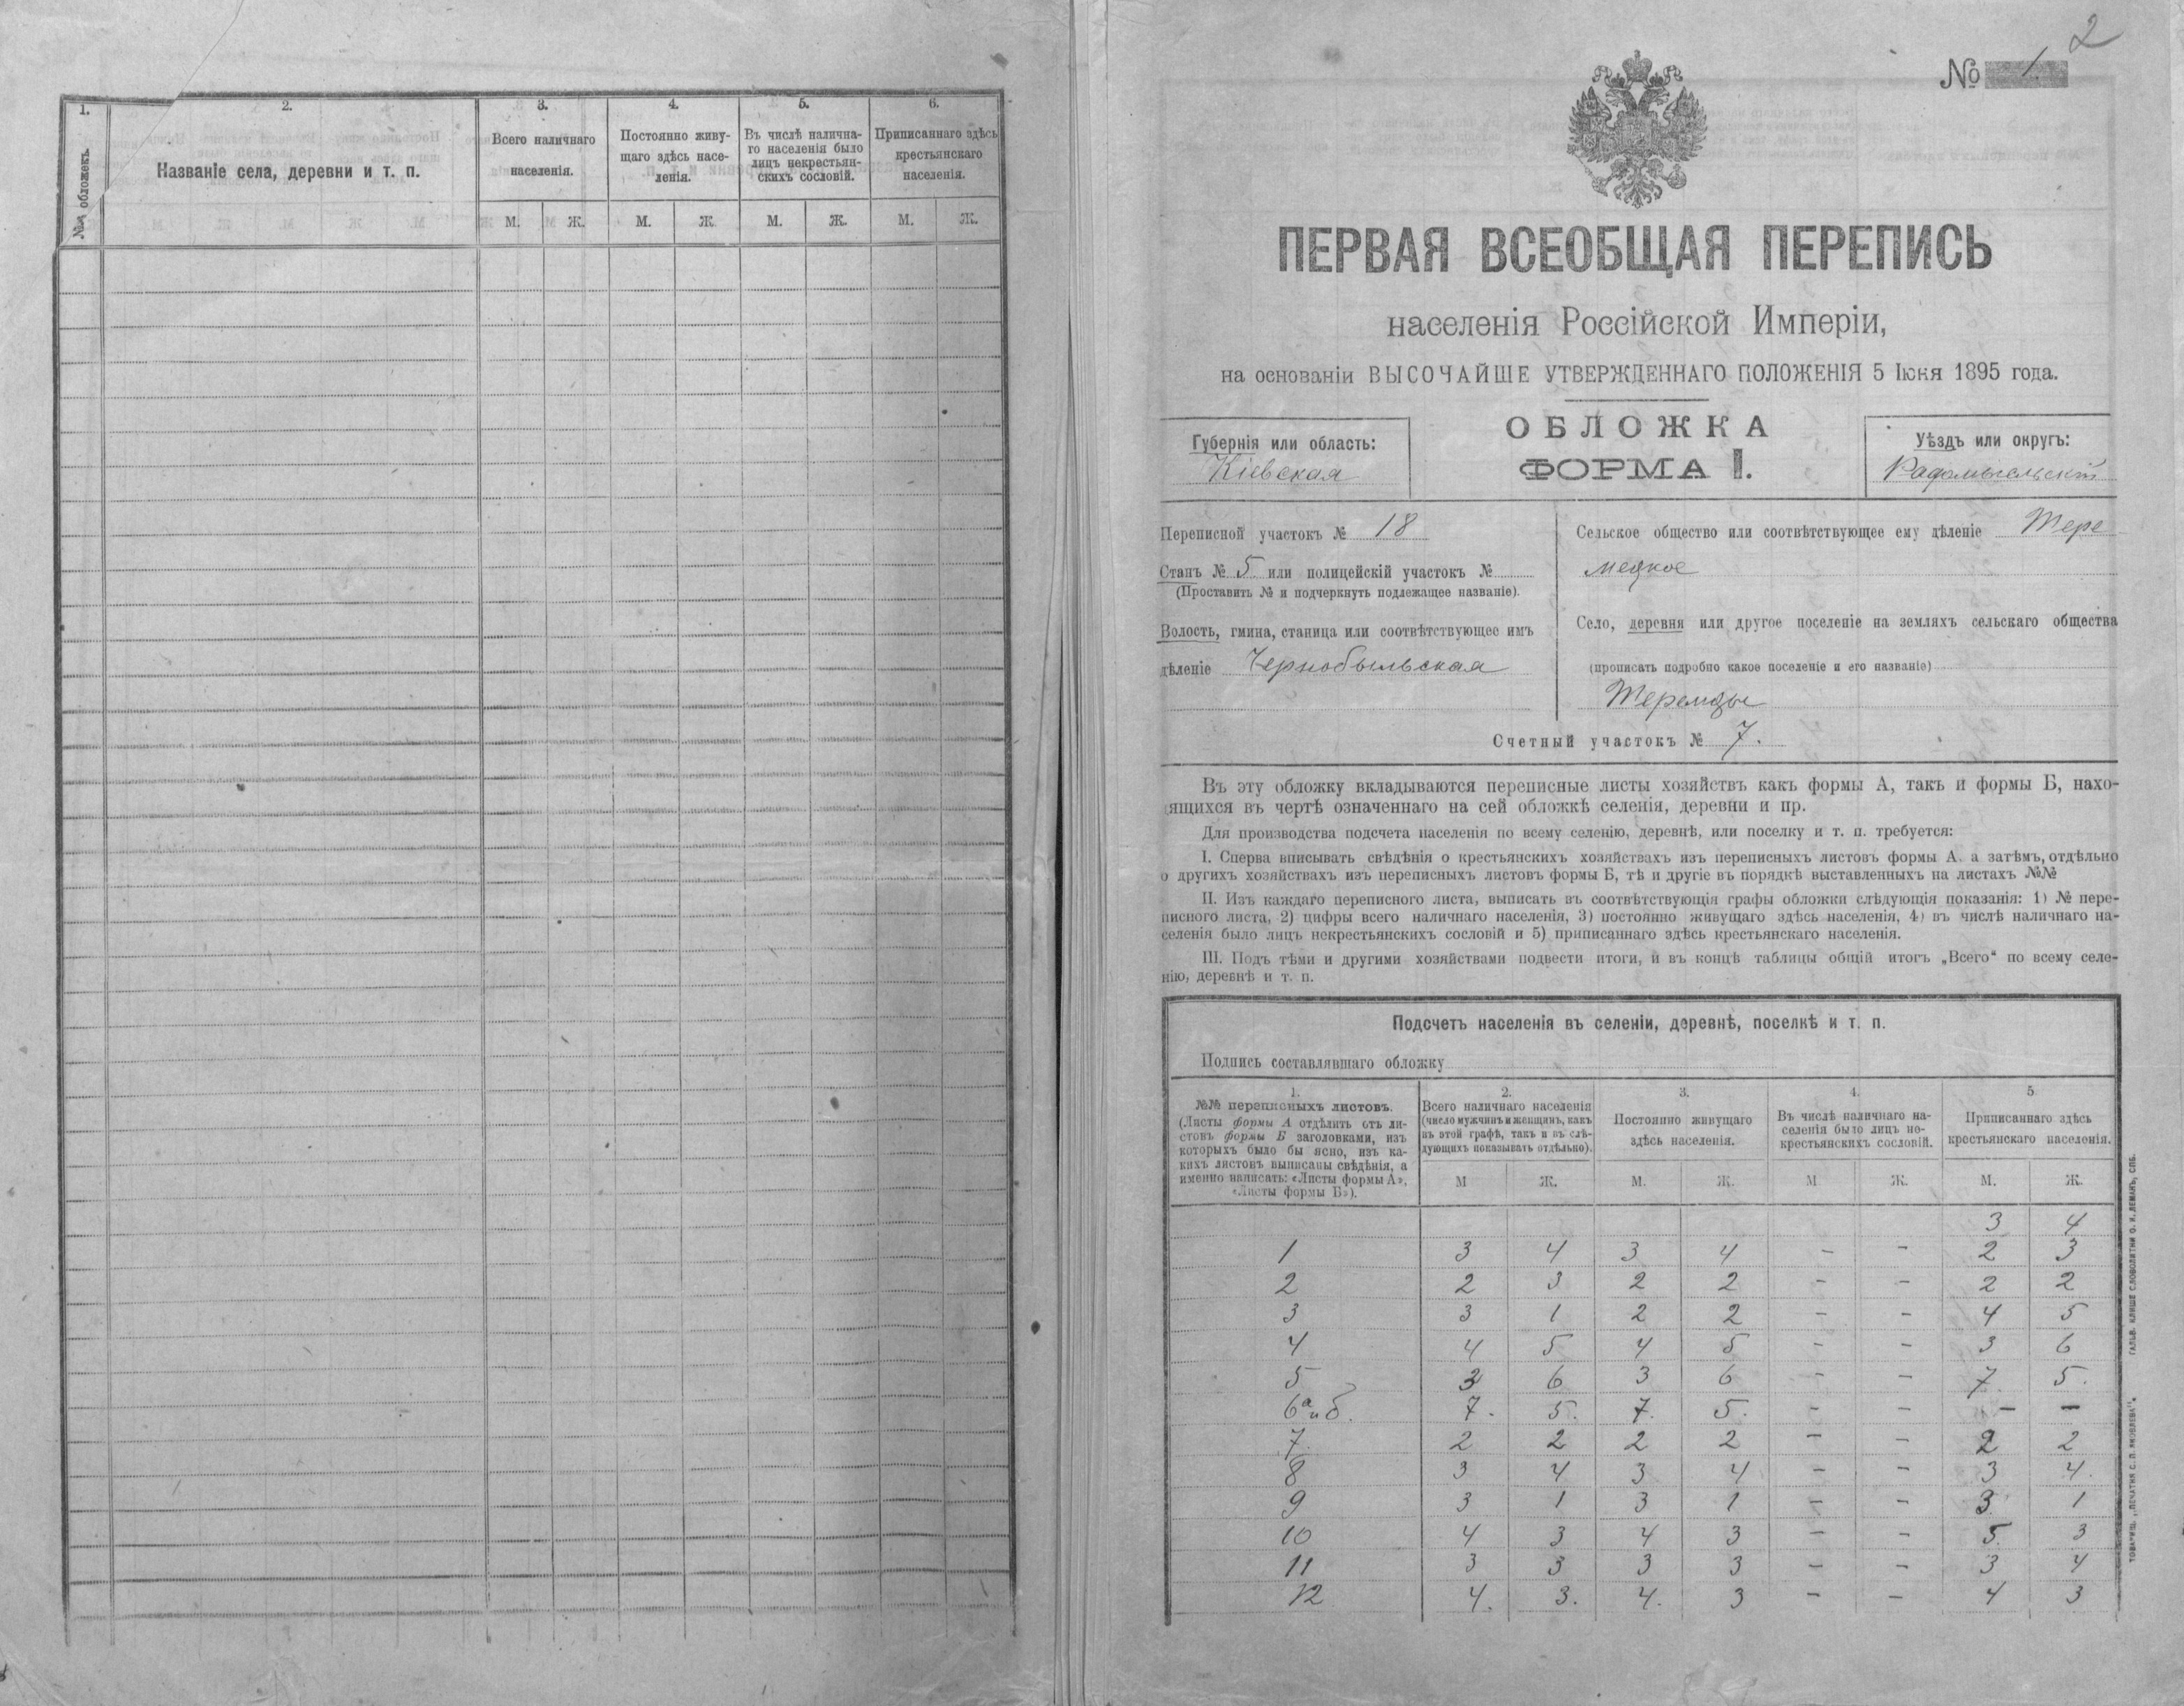 1.
2.
3.
4.
5.
6.
№№ обложекъ.
Названіе села, деревни и т. п.
Всего наличнаго
населенія.
Постоянно живу-
щаго здѣсь насе-
ленія.
Въ числѣ налична-
го населенія было
лицъ некрестьян-
скихъ сословій.
Приписаннаго здѣсь
крестьянскаго
населенія.
М. Ж. М. Ж. М. Ж. М. Ж.
2
№ 1.
ПЕРВАЯ ВСЕОБЩАЯ ПЕРЕПИСЬ
населенія Россійской Имперіи,
на основаніи ВЫСОЧАЙШЕ УТВЕРЖДЕННАГО ПОЛОЖЕНІЯ 5 Іюня 1895 года.
Губернія или область:
Кіевская
ОБЛОЖКА
ФОРМА I.
Уѣздъ или округъ:
Радомысльскій
Переписной участокъ № 18
Станъ № 5 или полицейскій участокъ №
(Проставить № и подчеркнуть подлежащее названіе).
Волость, гмина, станица или соотвѣтствующее имъ
дѣленіе Чернобыльская
Сельское общество или соотвѣтствующее ему дѣленіе Тере
мецкое
Село, деревня или другое поселеніе на земляхъ сельскаго общества
(прописать подробно какое поселеніе и его названіе)
Теремцы
Счетный участокъ № 7.
Въ эту обложку вкладываются переписные листы хозяйствъ какъ формы А, такъ и формы Б, нахо-
ящихся въ чертѣ означеннаго на сей обложкѣ селенія, деревни и пр.
Для производства подсчета населенія по всему селенію, деревнѣ, или поселку и т. п. требуется:
I. Сперва вписывать свѣдѣнія о крестьянскихъ хозяйствахъ изъ переписныхъ листовъ формы А. а затѣмъ, отдѣльно
о другихъ хозяйствахъ изъ переписныхъ листовъ формы Б, тѣ и другіе въ порядкѣ выставленныхъ на листахъ №№
II. Изъ каждаго переписного листа, выписать въ соотвѣтствующія графы обложки слѣдующія показанія: 1) № пере-
писного листа, 2) цифры всего наличнаго населенія, 3) постоянно живущаго здѣсь населенія, 4) въ числѣ наличнаго на-
селенія было лицъ некрестьянскихъ сословій и 5) приписаннаго здѣсь крестьянскаго населенія.
III. Подъ тѣми и другими хозяйствами подвести итоги, и въ концѣ таблицы общій итогъ „Всего“ по всему селе-
нію, деревнѣ и т. п.
Подсчетъ населенія въ селеніи, деревнѣ, поселкѣ и т. п.
Подпись составлявшаго обложку
1.
№№ переписныхъ листовъ.
(Листы формы А отдѣлить отъ ли-
стовъ формы Б заголовками, изъ
которыхъ было бы ясно, изъ ка-
кихъ листовъ выписаны свѣдѣнія, а
именно написать: «Листы формы А»,
«Листы формы Б»).
2.
Всего наличнаго населенія
(число мужчинъ и женщинъ, какъ
въ этой графѣ, такъ и въ слѣ-
дующихъ показывать отдѣльно).
3.
Постоянно живущаго
здѣсь населенія.
4.
Въ числѣ наличнаго на-
селенія было лицъ не-
крестьянскихъ сословій.
5
Приписаннаго здѣсь
крестьянскаго населенія.
М Ж. М. Ж. М Ж. М. Ж.
3 4
1 3 4 3 4 - - 2 3
2 2 3 2 2 - - 2 2
3 3 1 2 2 - - 4 5
4 4 5 4 5 - - 3 6
5 3 6 3 6 - - 7. 5.
6а и б. 7. 5. 7. 5. - - - -
7 2 2 2 2 - - 2 2
8 3 4 3 4 - - 3 4.
9 3 1 3 1 - - 3. 1
10 4 3 4 3 - - 5. 3
11 3 3 3 3 - - 3 4
12 4. 3. 4. 3 - - 4 3
ТОВАРИЩ. „ПЕЧАТНЯ С. П. ЯКОВЛЕВА“. ГАЛЬВ. КЛИШЕ СЛОВОЛИТНИ О. И. ЛЕМАНЪ, СПБ.